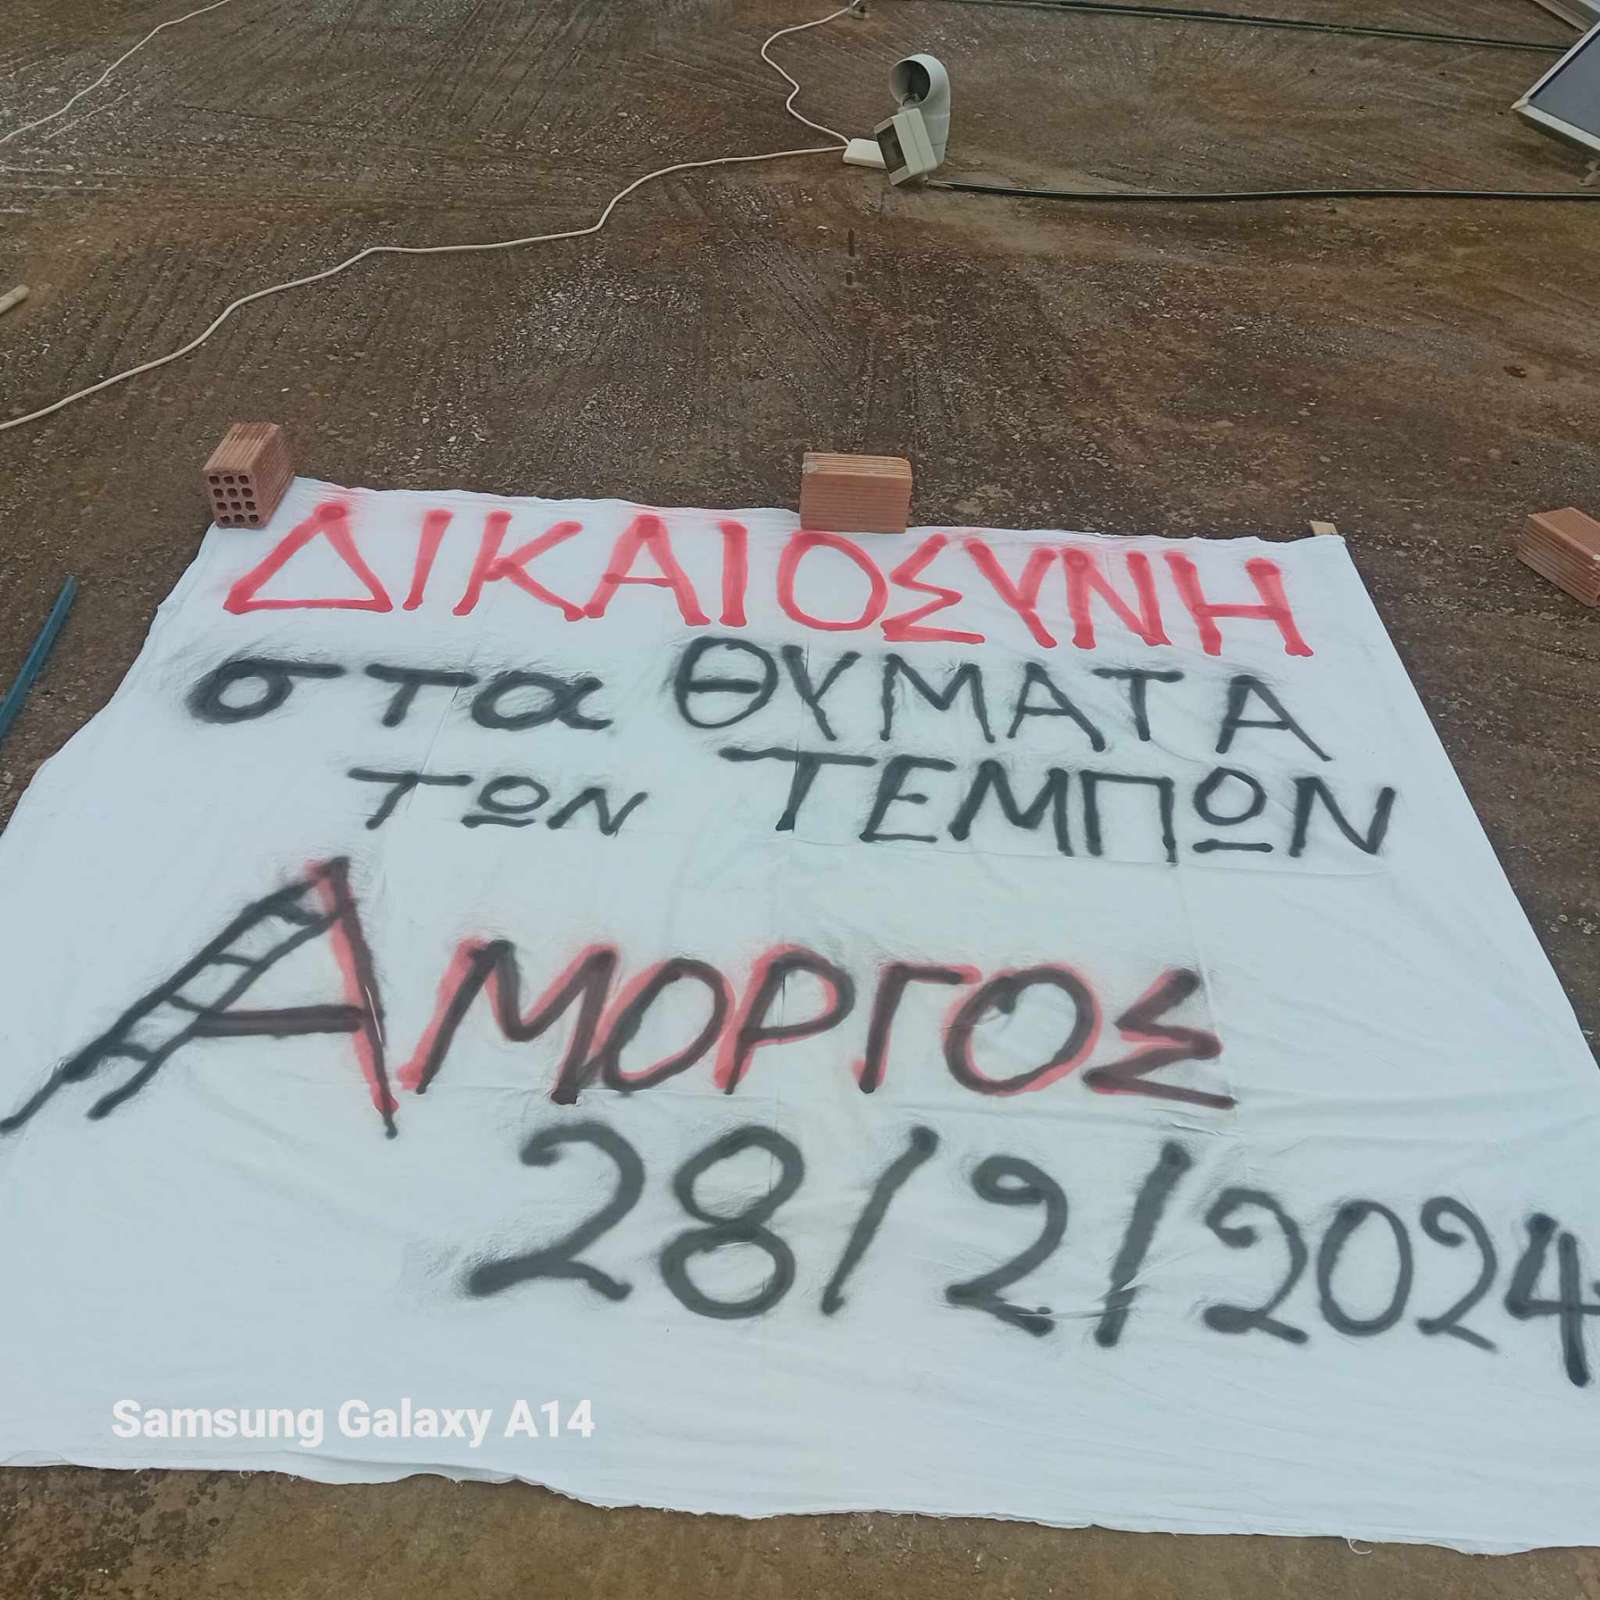 ΔΙΚΑΙΟΣΥΝΗ
στα ΘΥΜΑΤΑ
των ΤΕΜΠΩΝ
ΑΜΟΡΓΟΣ
28/2/2024
Samsung Galaxy A14